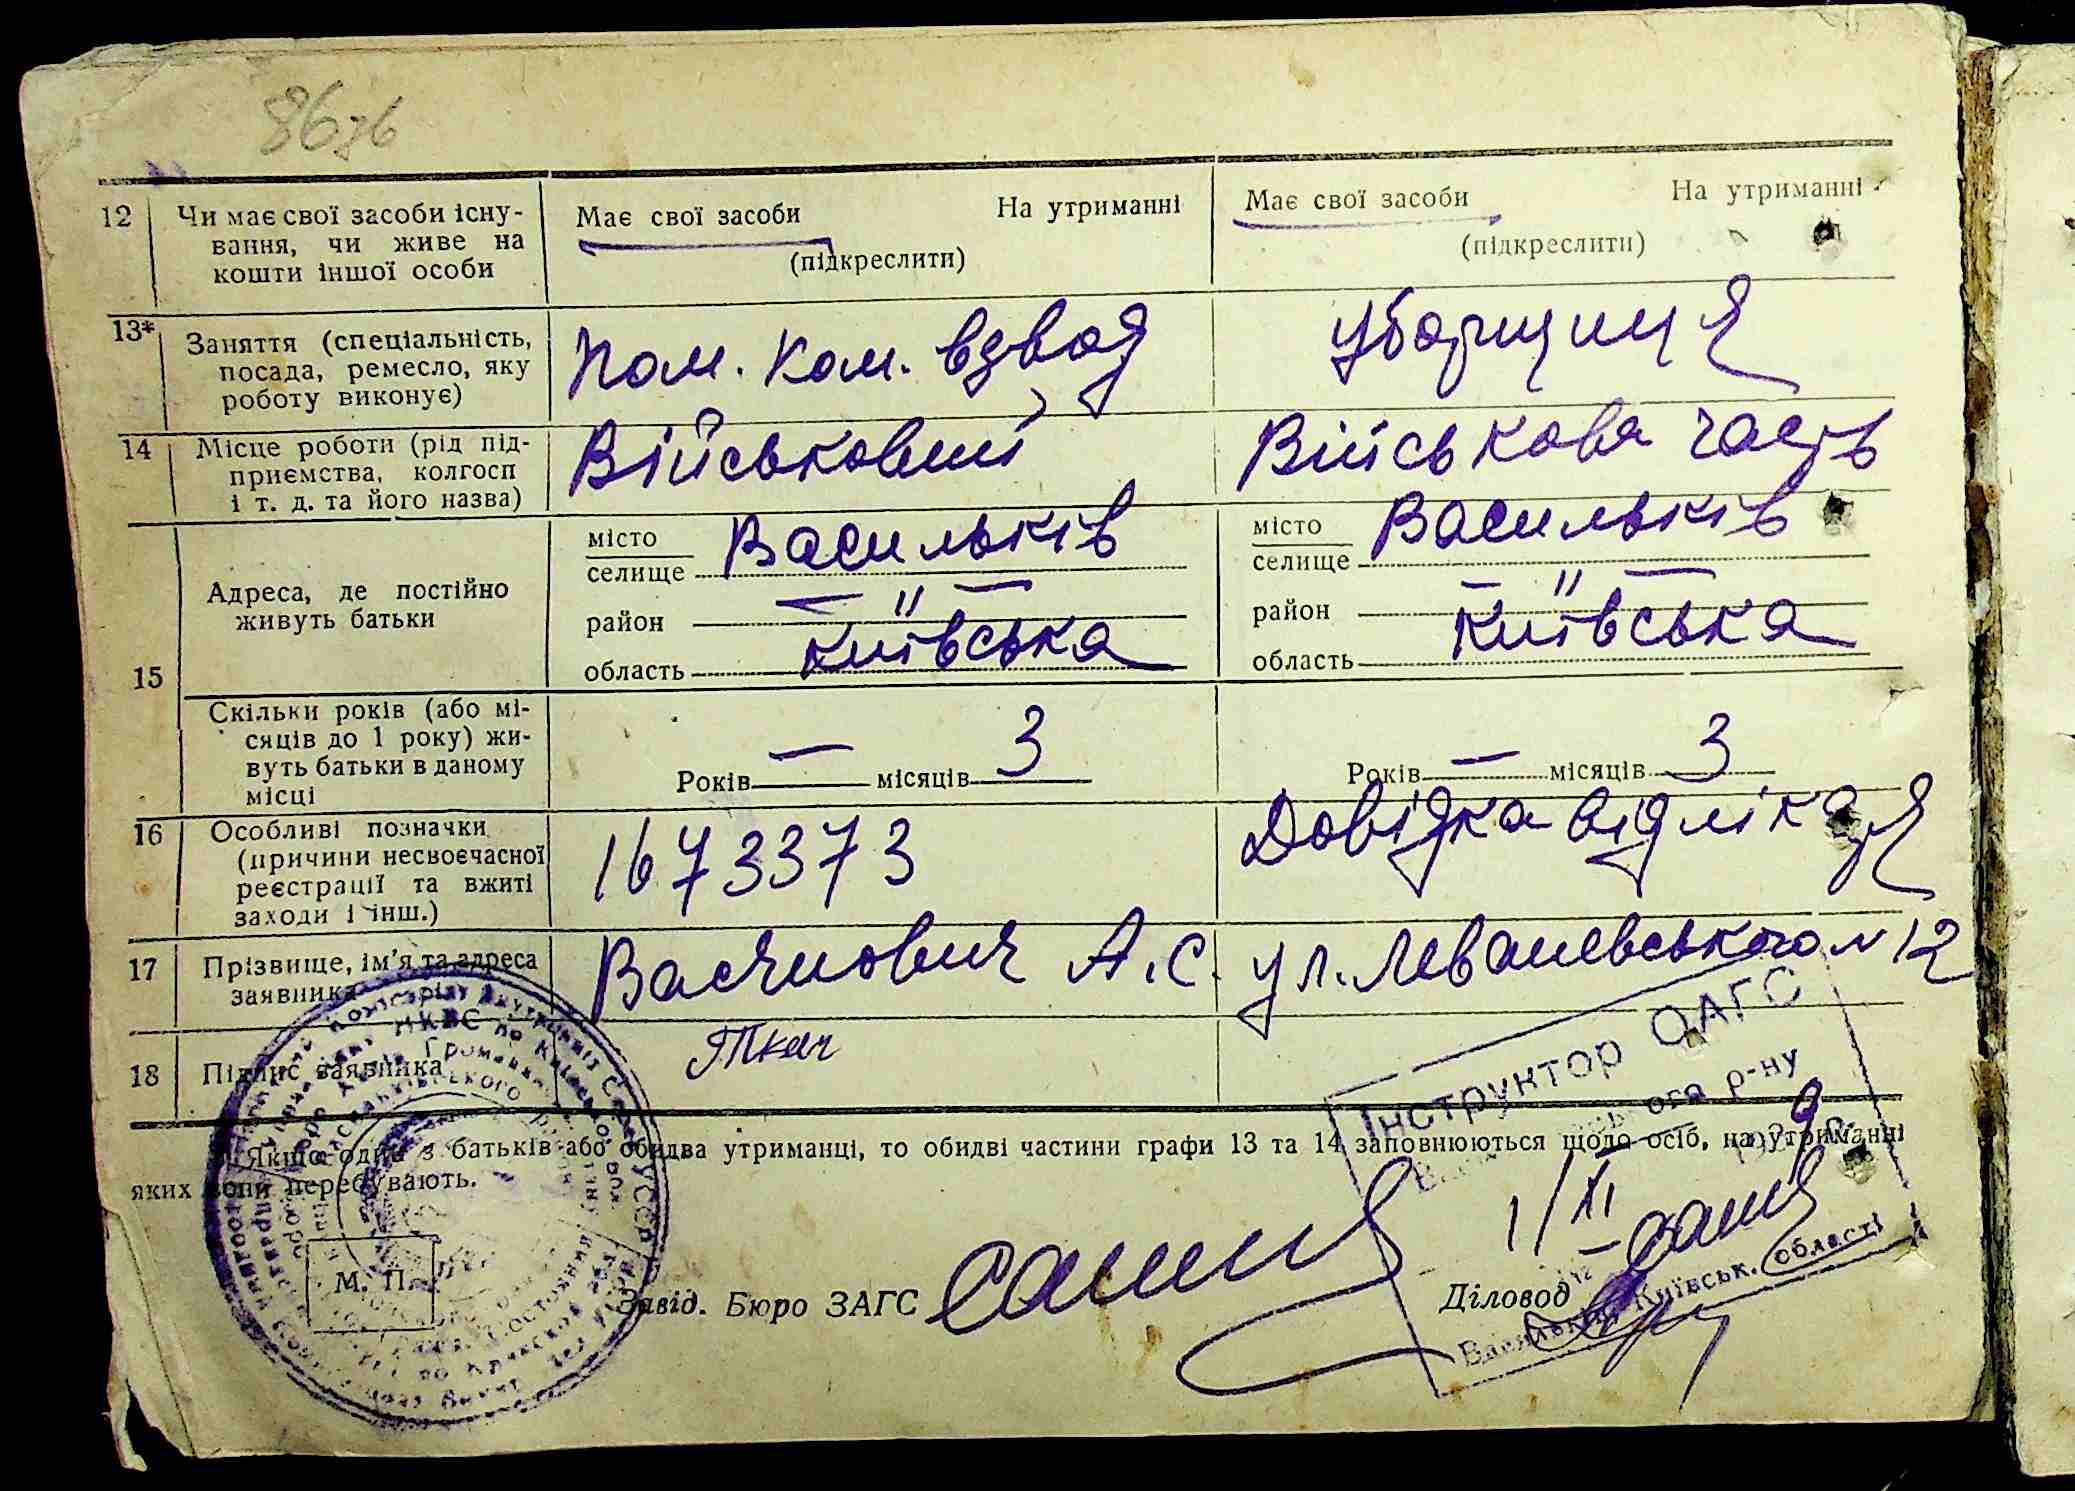 86зв
12 Чи має свої засоби існу- Має свої засоби На утриманні Має свої засоби На утриманні
вання, чи живе на (підкреслити) (підкреслити)
кошти іншої особи
13* Заняття (спеціальність, Пом. Ком. взвод Уборщиця
посада, ремесло, яку
роботу виконує)
14 Місце роботи (рід під- Військовий Військова часть
приємства, колгосп
і т. д. та його назва)
15 Адреса, де постійно місто Васильків місто Васильків
живуть батьки селище селище
район — " — район — " —
область Київська область Київська
Скільки років (або мі-
сяців до 1 року) жи-
вуть батьки в даному Років — місяців 3 Років — місяців 3
місці
16 Особливі позначки 1673373 Довідка від лікаря
(причини несвоєчасної
реєстрації та вжиті
заходи і інш.)
17 Прізвище, ім'я та адреса Васчнович А.С. ул. Леваневського № 12
заявника
18 Підпис заявника Ткач
Інструктор ОАГС
р-ну
Якщо один з батьків або обидва утриманці, то обидві частини графи 13 та 14 заповнюються щодо осіб, на утриманні
яких вони перебувають.
1/XI
М. П. Завід. Бюро ЗАГС Діловод
Київськ. області